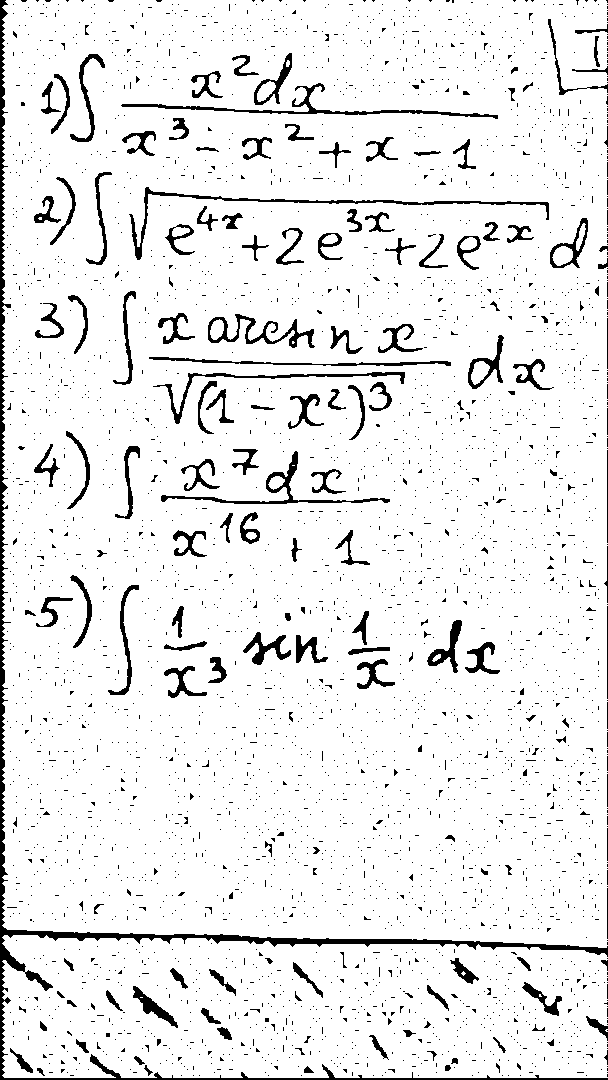 I
1) ∫ x²dx / (x³ - x² + x - 1)
2) ∫ √(e⁴ˣ + 2e³ˣ + 2e²ˣ) d
3) ∫ x arcsin x / √((1 - x²)³) dx
4) ∫ x⁷dx / (x¹⁶ + 1)
5) ∫ 1/x³ sin 1/x dx